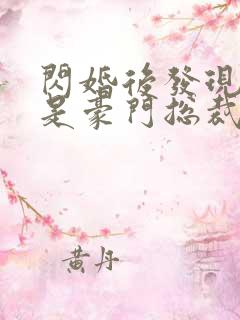 閃婚後發現
是豪門總裁
黃丹